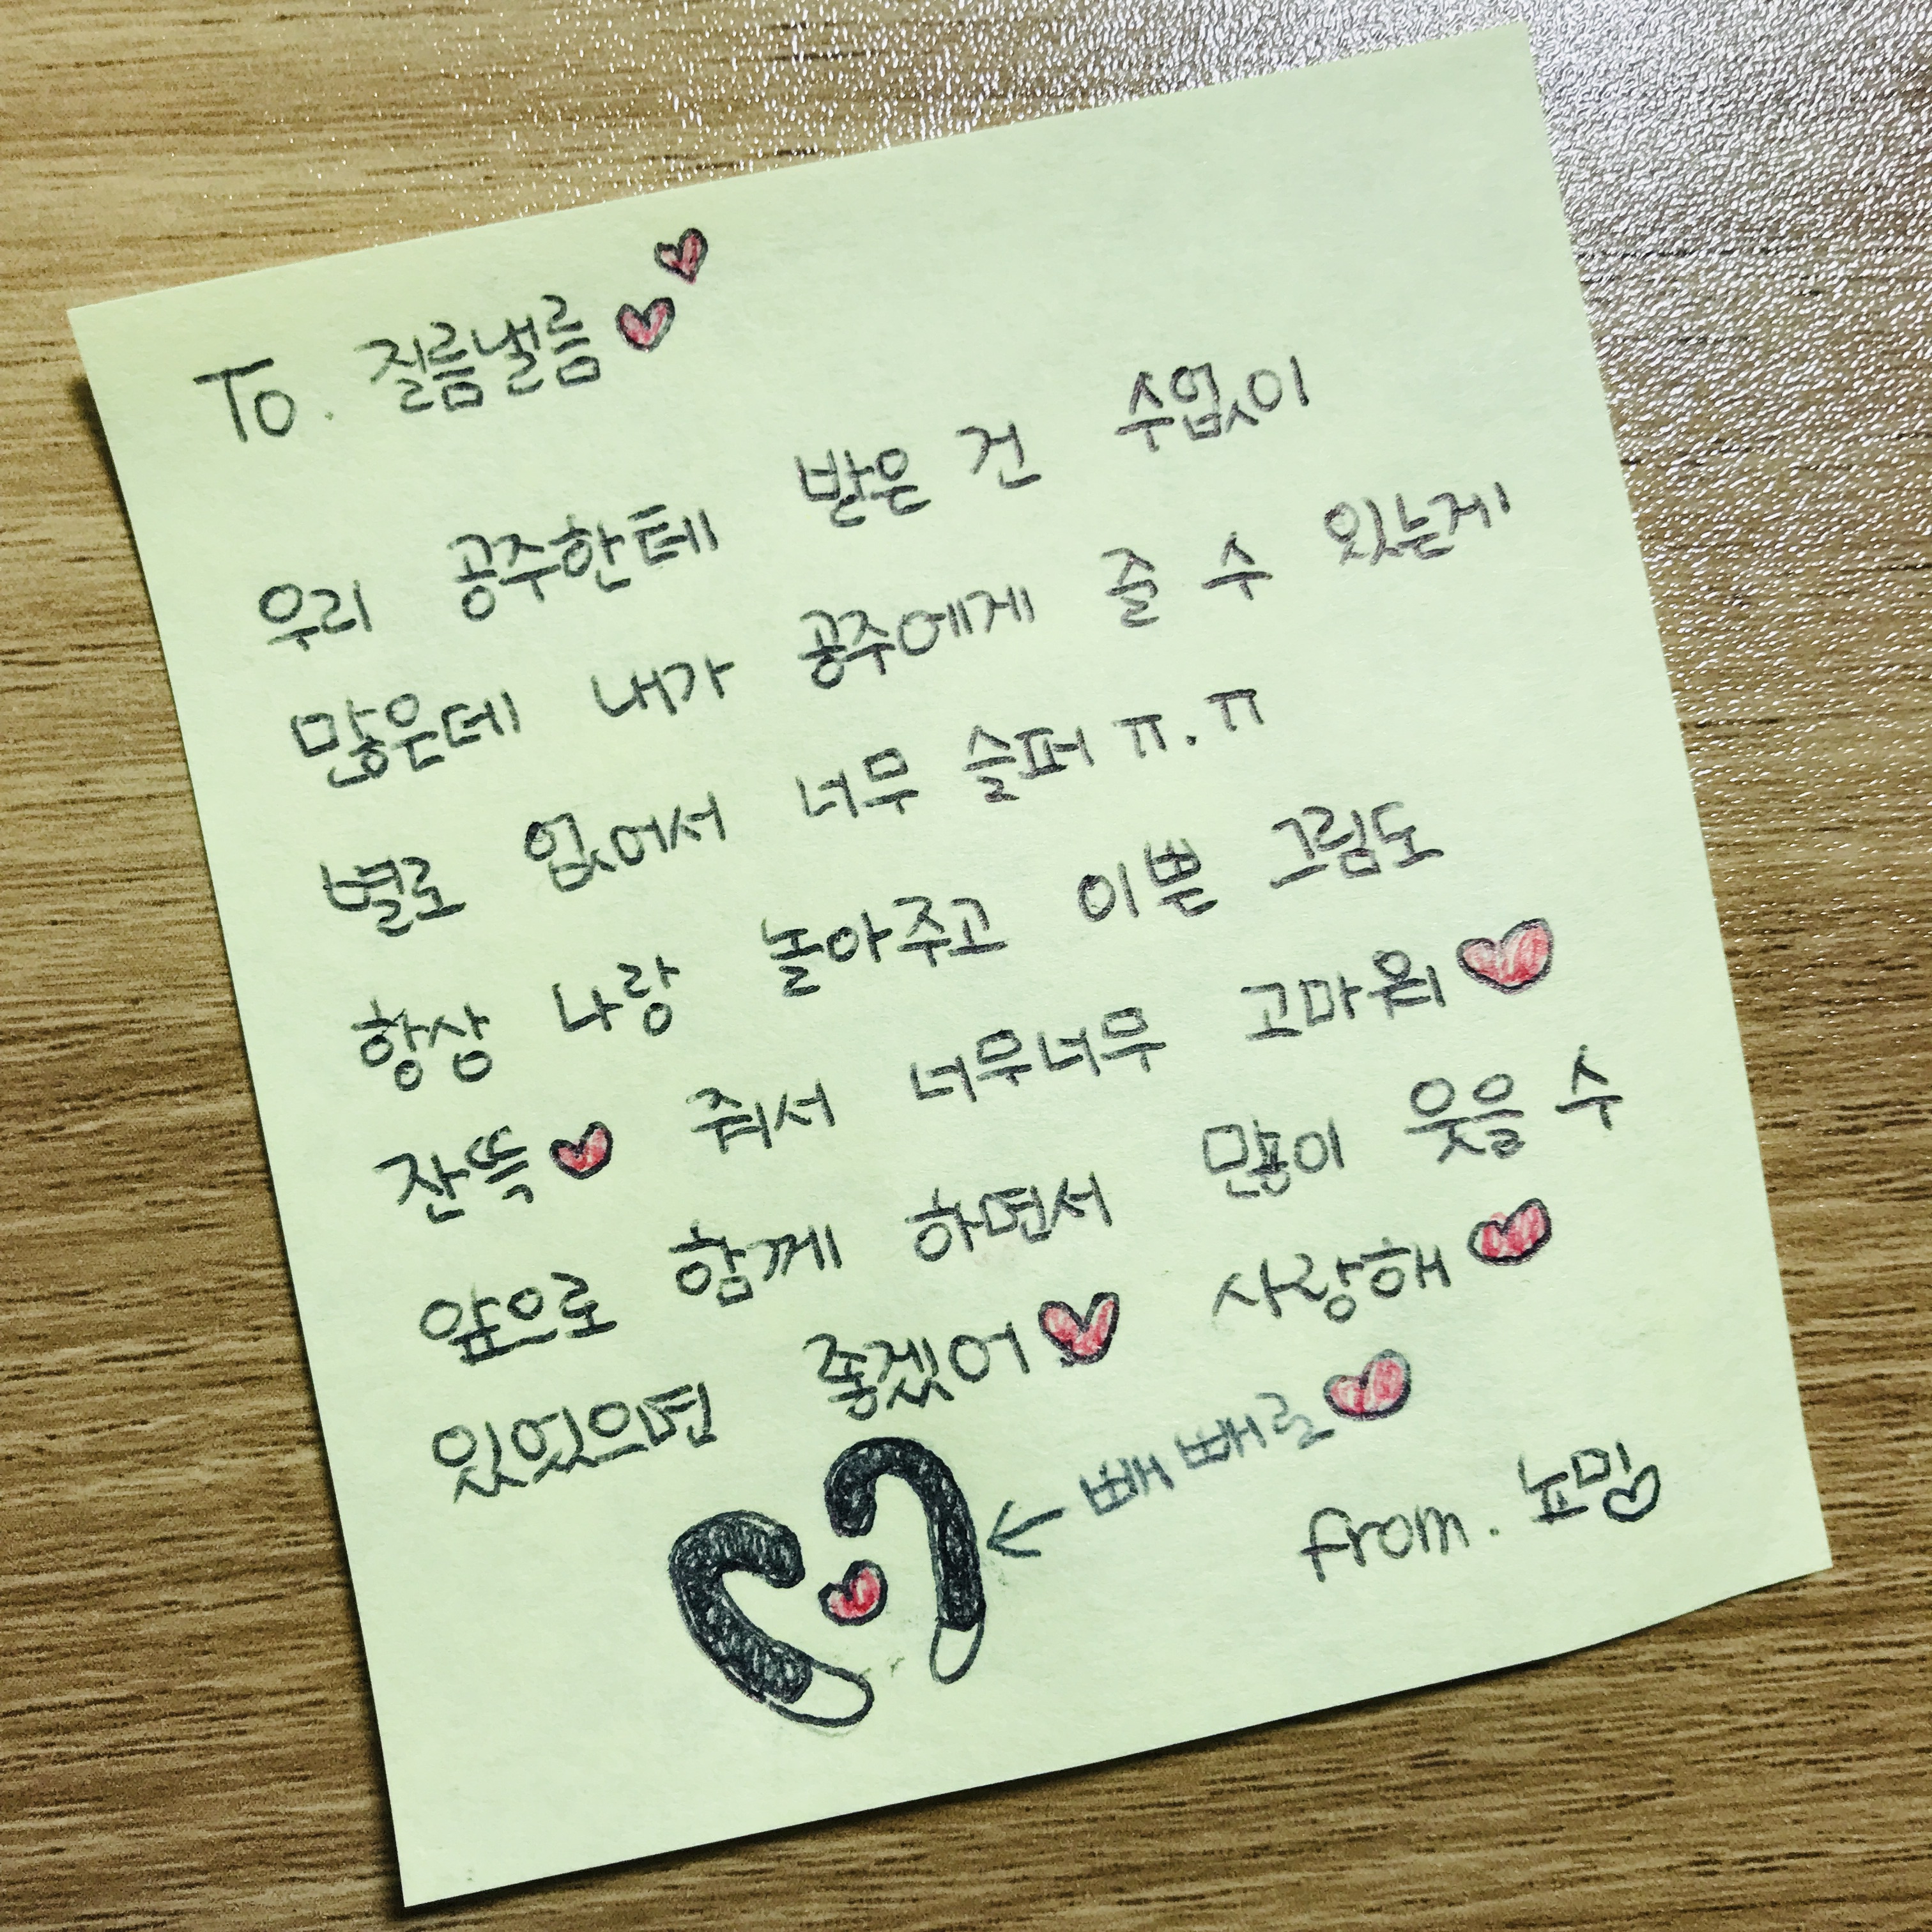 To. 질름낼름♥♥
우리 공주한테 받은 건 수없이
많은데 내가 공주에게 줄 수 있는게
별로 없어서 너무 슬퍼 ㅠ.ㅠ
항상 나랑 놀아주고 이쁜 그림도
잔뜩♥ 줘서 너무너무 고마워♥
앞으로 함께 하면서 많이 웃을 수
있었으면 좋겠어♥ 사랑해♥
← 빼빼로♥
from. 뇨밈